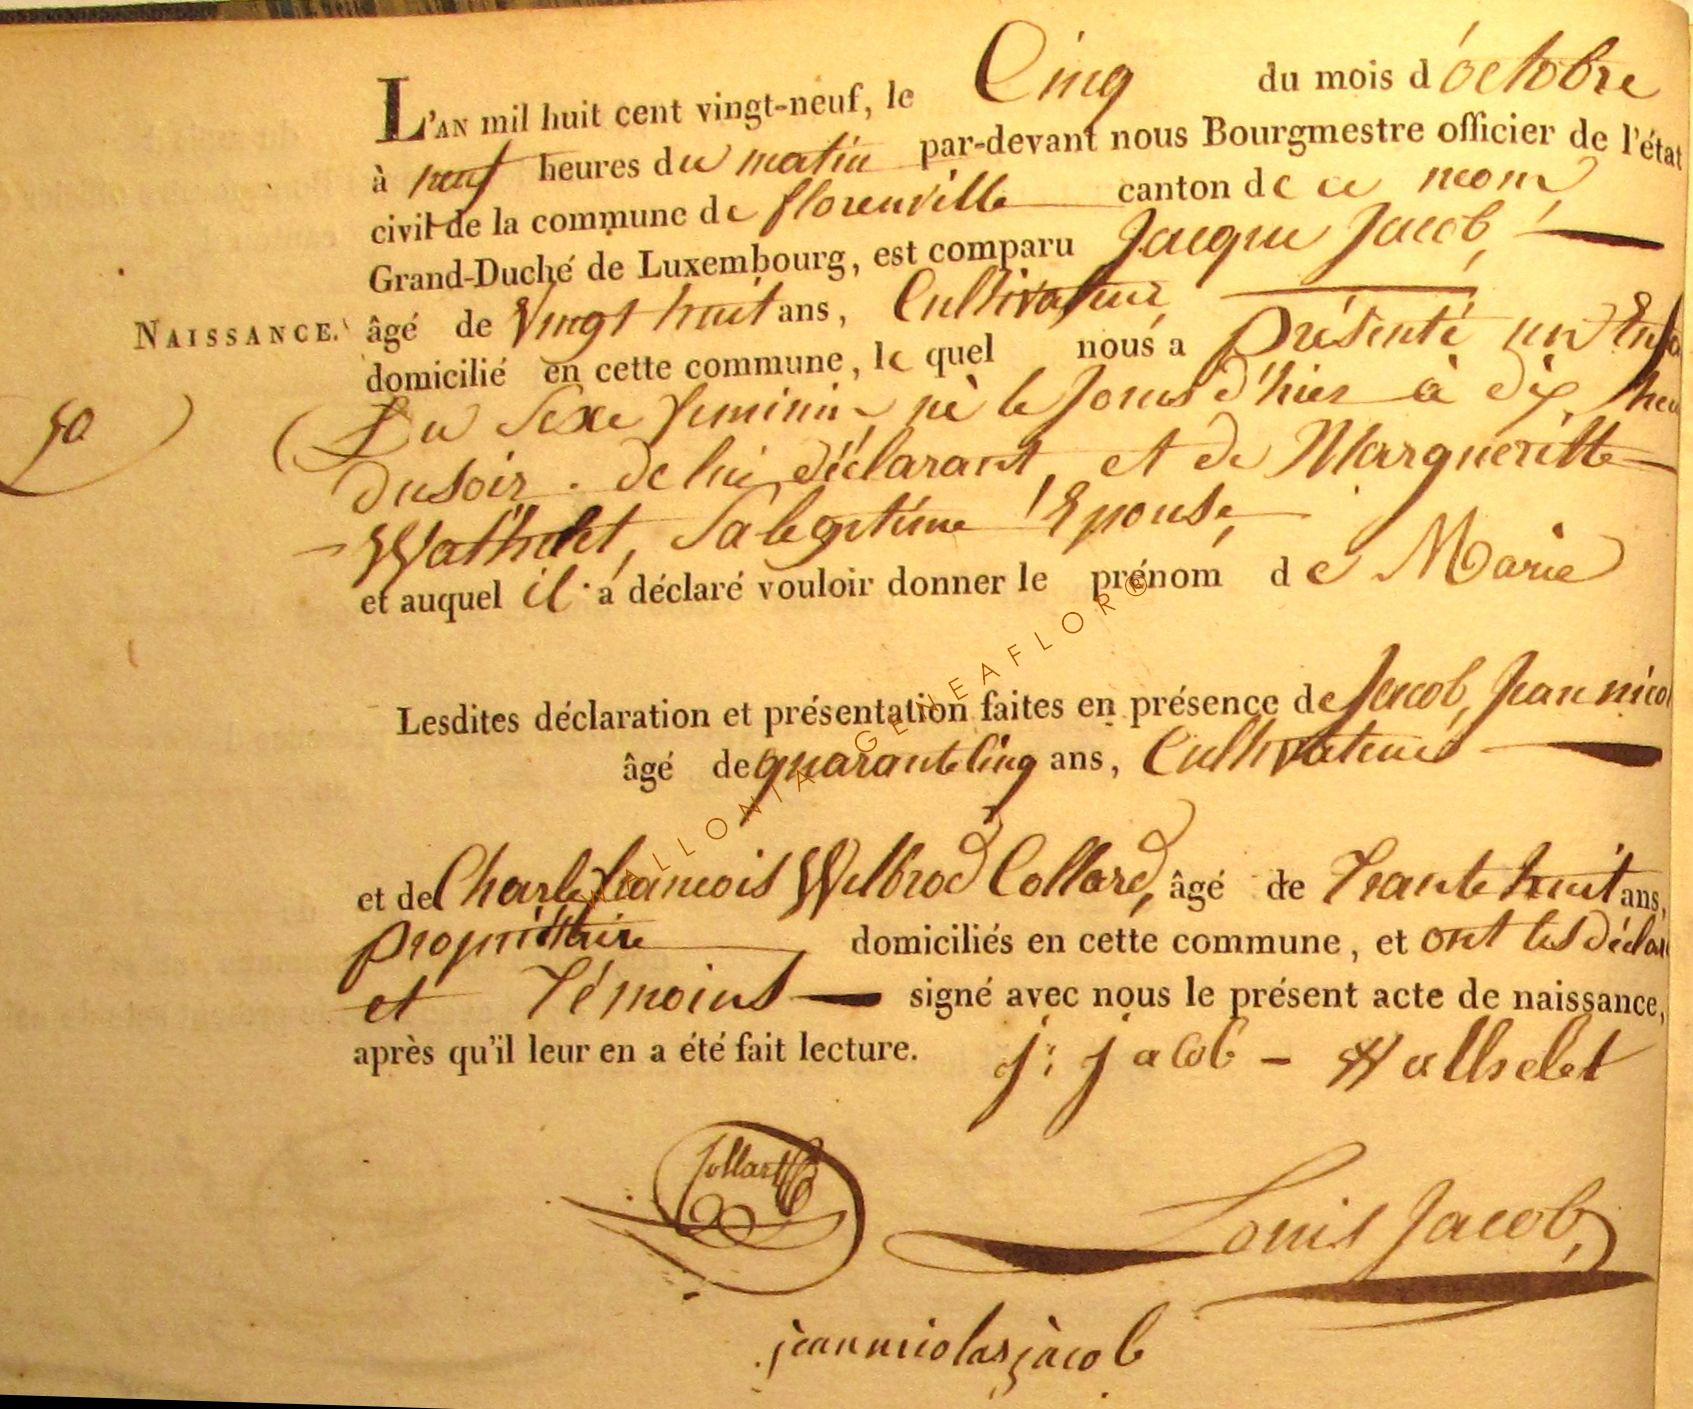 L'AN mil huit cent vingt-neuf, le Cinq du mois d'octobre
à neuf heures du matin par-devant nous Bourgmestre officier de l'état
civil de la commune de florenville canton de ce nom,
Grand-Duché de Luxembourg, est comparu Jacque Jacob,
NAISSANCE. âgé de Vingt huit ans, Cultivateur,
domicilié en cette commune, le quel nous a présenté un Enfa
50
Du Sexe feminin né le Jours d'hier à dix heu
du soir. de lui déclarant, et de Margueritte
Wathelet, Sa legitime Epouse,
et auquel il a déclaré vouloir donner le prénom de Marie
Lesdites déclaration et présentation faites en présence de Jacob, Jean nicol
âgé de quarante Cinq ans, Cultivateur
et de Charle francois Wilbrod Collard, âgé de Trante huit ans,
propriettaire domiciliés en cette commune, et ont les déclar
et Témoins signé avec nous le présent acte de naissance,
après qu'il leur en a été fait lecture. j: jacob - Wathelet
Collart
Louis Jacob,
jean nicolas jacob
WALLONIA GENEAFLOR®